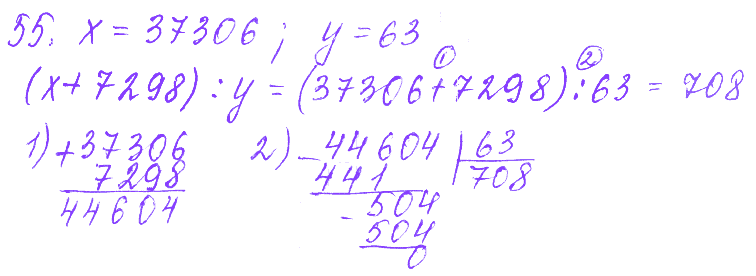 55. x = 37306 ; y = 63
(x + 7298) : y = (37306 + 7298) : 63 = 708
① ②
1) + 37306
7298
44604
2) - 44604 | 63
441 708
- 504
504
0